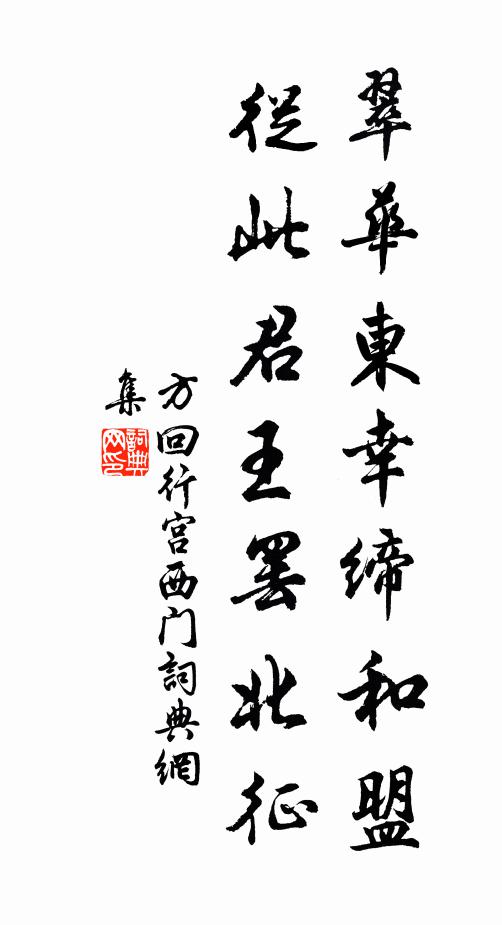 翠華東幸締和盟
從此君王罷北征
方回行宮西门詞典網
集
詞典
网印